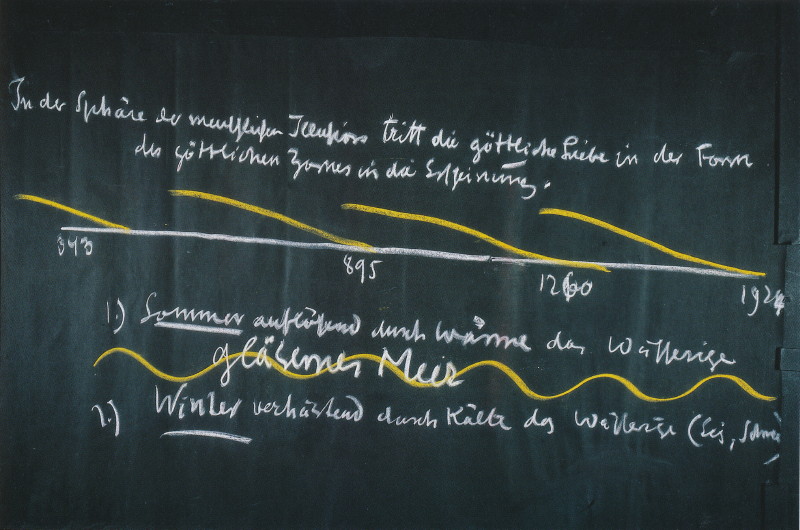 In der Sphäre der menschlichen Illusions tritt die göttliche Liebe in der Form
des göttlichen Zornes in die Erscheinung.
843
895
1260
1924
1.) Sommer auflösend durch Wärme das Wässerige
gläsernes Meer
2.) Winter verhärtend durch Kälte das Wässerige (Eis, Schnee)